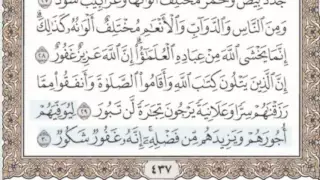 جُدَدٌۢ بِيضٌ وَحُمْرٌ مُّخْتَلِفٌ أَلْوَٰنُهَا وَغَرَابِيبُ سُودٌ ٢٧
وَمِنَ ٱلنَّاسِ وَٱلدَّوَآبِّ وَٱلْأَنْعَٰمِ مُخْتَلِفٌ أَلْوَٰنُهُۥ كَذَٰلِكَ
إِنَّمَا يَخْشَى ٱللَّهَ مِنْ عِبَادِهِ ٱلْعُلَمَٰٓؤُا۟ إِنَّ ٱللَّهَ عَزِيزٌ غَفُورٌ ٢٨
إِنَّ ٱلَّذِينَ يَتْلُونَ كِتَٰبَ ٱللَّهِ وَأَقَامُوا۟ ٱلصَّلَوٰةَ وَأَنفَقُوا۟ مِمَّا
رَزَقْنَٰهُمْ سِرًّا وَعَلَانِيَةً يَرْجُونَ تِجَٰرَةً لَّن تَبُورَ ٢٩ لِيُوَفِّيَهُمْ
أُجُورَهُمْ وَيَزِيدَهُم مِّن فَضْلِهِۦٓ إِنَّهُۥ غَفُورٌ شَكُورٌ ٣٠
٤٣٧